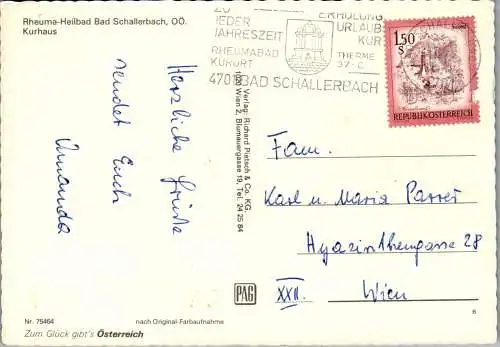 Rheuma-Heilbad Bad Schallerbach, OÖ.
Kurhaus
Herzliche Grüße
sendet Euch
Amanda
Nr. 75464
nach Original-Farbaufnahme
Zum Glück gibt's Österreich
Verlag: Richard Pietsch & Co. KG.
1020 Wien 2, Blumauergasse 19, Tel. 24 25 84
PAG
ZU
JEDER
JAHRESZEIT
RHEUMABAD
KURORT
ERHOLUNG
URLAUB
KUR
THERME
37° C
4701 BAD SCHALLERBACH
1.50
S
REPUBLIK ÖSTERREICH
Fam.
Karl u. Maria Parrer
Hyazinthengasse 28
XXII. Wien
6